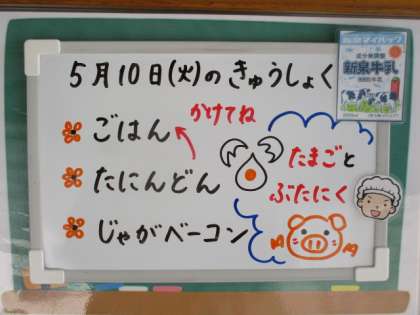 5月10日(火)のきゅうしょく
ごはん
かけてね
たにんどん
たまごと
ぶたにく
じゃがベーコン
新泉牛乳